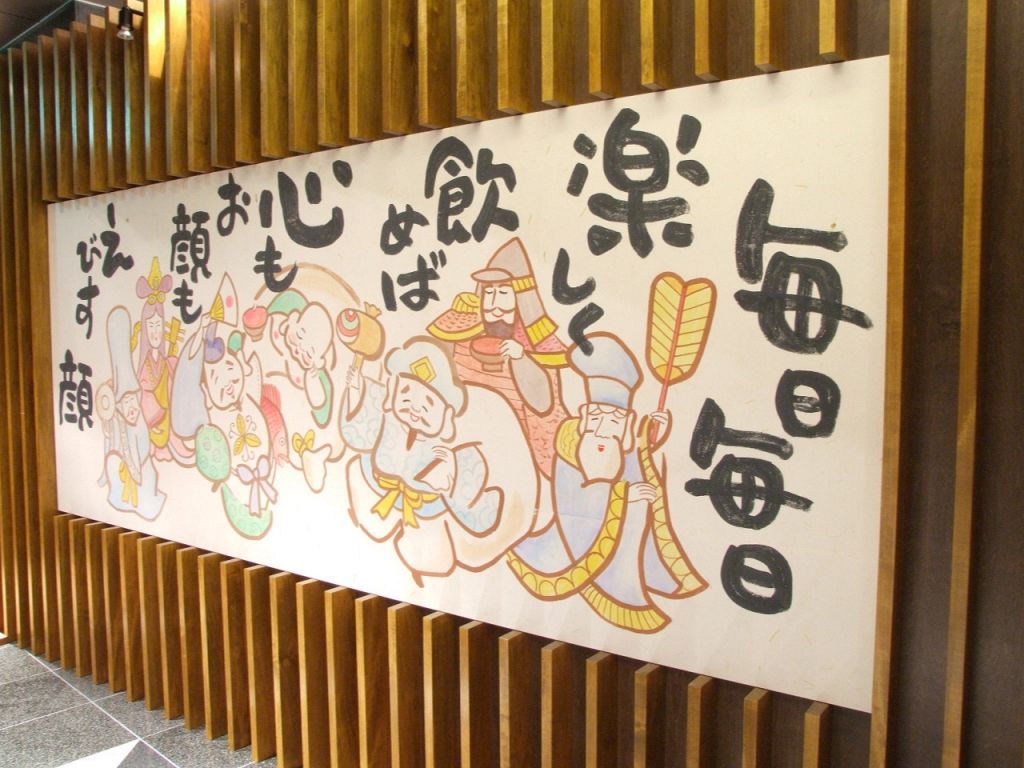 毎日毎日
楽しく
飲めば
心も
お顔も
えびす顔